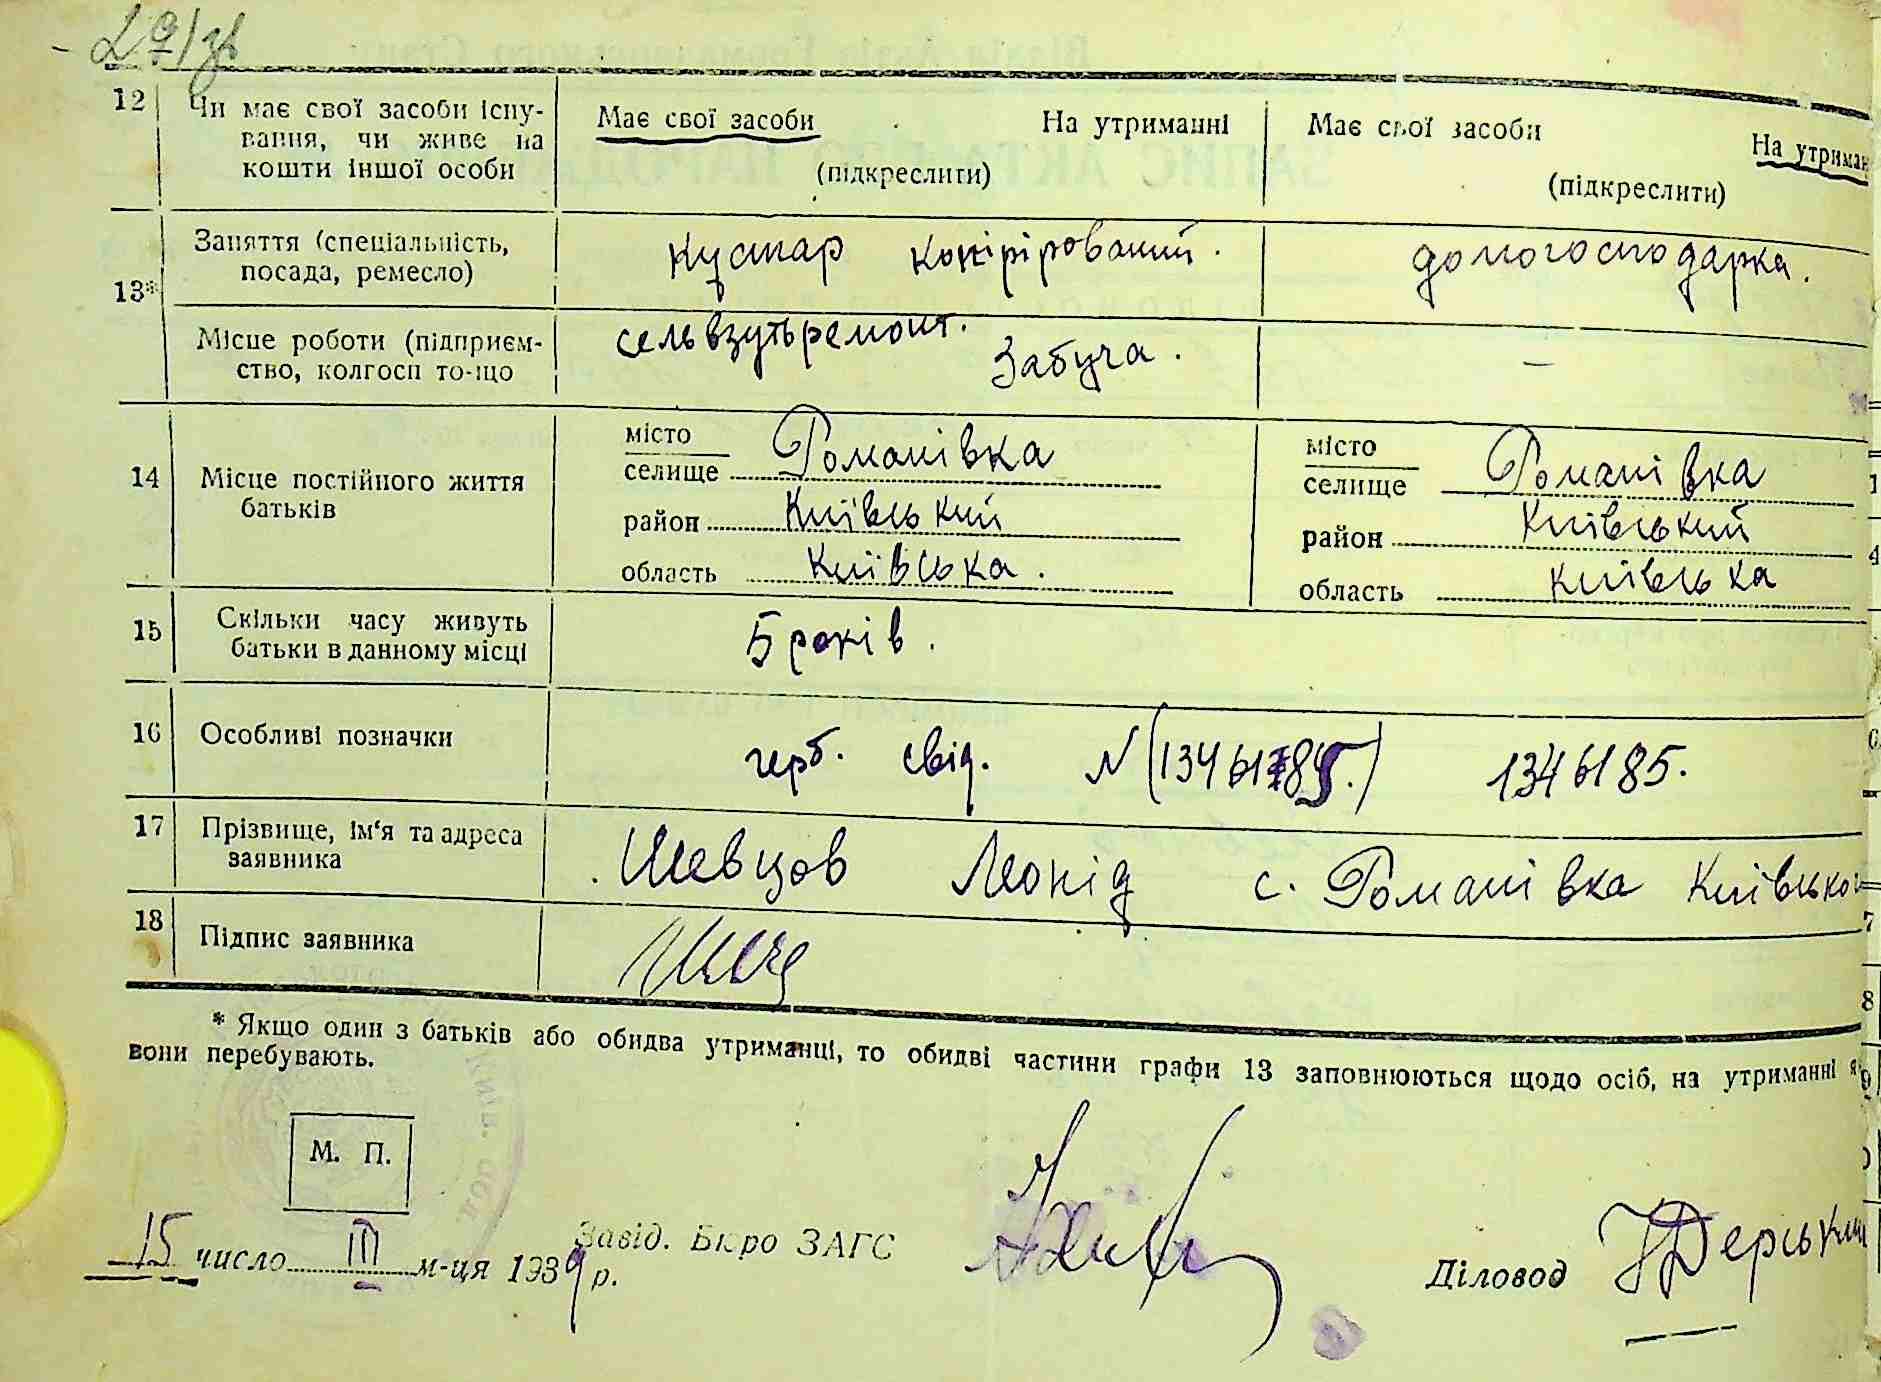 12 Чи має свої засоби існу-
вання, чи живе на
кошти іншої особи
Має свої засоби На утриманні
(підкреслити)
Має свої засоби На утриман
(підкреслити)
13*
Заняття (спеціальність,
посада, ремесло)
кустар копірірований.
домогосподарка.
Місце роботи (підприєм-
ство, колгосп то-що
сельвзутьремонт.
Забуча.
—
14 Місце постійного життя
батьків
місто
селище Романівка
район Київський
область Київська.
місто
селище Романівка
район Київський
область Київська
15 Скільки часу живуть
батьки в данному місці
5 років.
16 Особливі позначки
герб. свід. N 1346185.
17 Прізвище, ім'я та адреса
заявника
Шевцов Леонід с. Романівка Київсько
18 Підпис заявника
* Якщо один з батьків або обидва утриманці, то обидві частини графи 13 заповнюються щодо осіб, на утриманні я
вони перебувають.
М. П.
15 число III м-ця 1939 р.
Завід. Бюро ЗАГС
Діловод